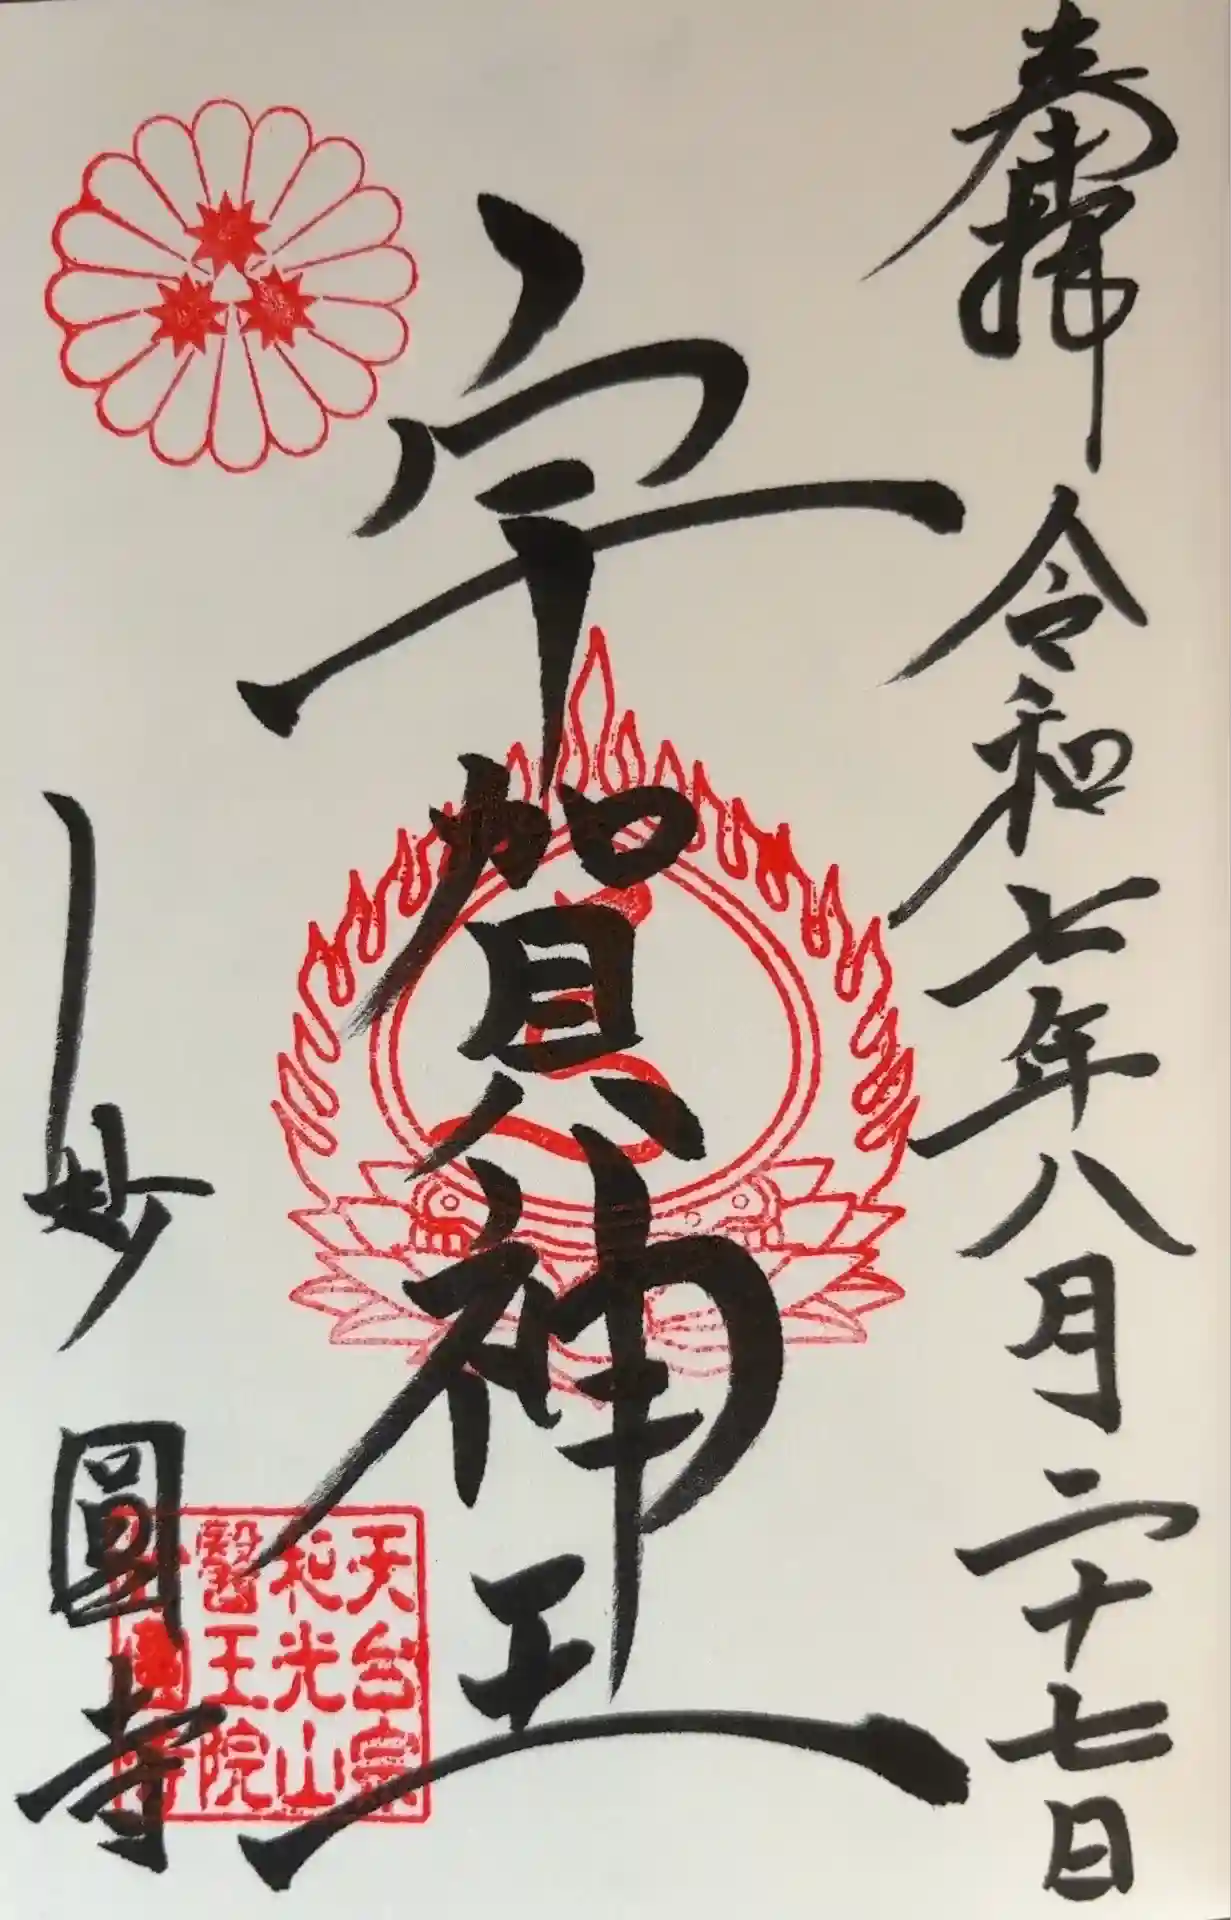 奉拝 令和七年八月二十七日
宇賀神王
妙圓寺
天台宗
和光山
醫王院
妙圓寺